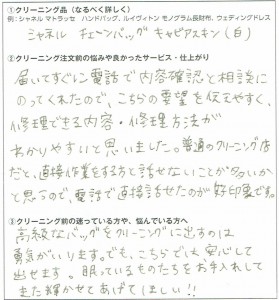 ①クリーニング品（なるべく詳しく）
例：シャネル マトラッセ　ハンドバッグ、ルイヴィトン モノグラム長財布、ウェディングドレス
シャネル チェーンバッグ キャビアスキン（白）
②クリーニング注文前の悩みや良かったサービス・仕上がり
届いてすぐに電話で内容確認と相談に
のってくれたので、こちらの要望を伝えやすく、
修理できる内容・修理方法が
わかりやすいと思いました。普通のクリーニング店
だと、直接作業をする方と話せないことが多いか
と思うので、電話で直接話せたのが好印象です。
③クリーニング前の迷っている方や、悩んでいる方へ
高級なバッグをクリーニングに出すのは
勇気がいります。でも、こちらでしたら安心して
出せます。眠っているものたちをお手入れして
また輝かせてあげてほしい!!